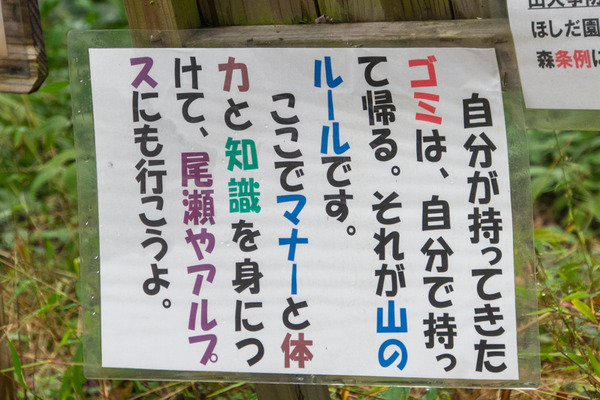 自分が持ってきた
ゴミは、自分で持っ
て帰る。それが山の
ルールです。
ここでマナーと体
力と知識を身につ
けて、尾瀬やアルプ
スにも行こうよ。
ほしだ園
森条例に